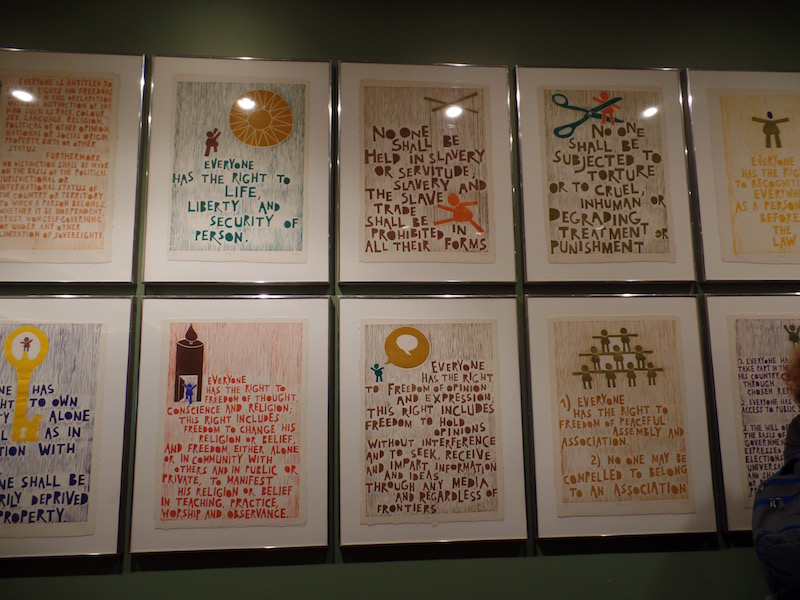 EVERYONE IS ENTITLED TO
RIGHTS AND FREEDOMS
IN THE DECLARATION
WITHOUT DISTINCTION OF ANY
SUCH AS RACE, COLOUR,
SEX, LANGUAGE, RELIGION,
POLITICAL OR OTHER OPINION,
NATIONAL OR SOCIAL ORIGIN,
PROPERTY, BIRTH OR OTHER
STATUS.
FURTHERMORE
NO DISTINCTION SHALL BE MADE
ON THE BASIS OF THE POLITICAL
JURISDICTIONAL OR
INTERNATIONAL STATUS OF
THE COUNTRY OR TERRITORY
TO WHICH A PERSON BELONGS,
WHETHER IT BE INDEPENDENT,
TRUST, NON-SELF-GOVERNING,
OR UNDER ANY OTHER
LIMITATION OF SOVEREIGNTY.
EVERYONE
HAS THE RIGHT TO
LIFE,
LIBERTY AND
SECURITY OF
PERSON.
NO ONE
SHALL BE
HELD IN SLAVERY
OR SERVITUDE,
SLAVERY AND
THE SLAVE
TRADE
SHALL BE
PROHIBITED IN
ALL THEIR FORMS
NO ONE
SHALL BE
SUBJECTED TO
TORTURE
OR TO CRUEL,
INHUMAN OR
DEGRADING
TREATMENT OR
PUNISHMENT
EVERYONE
HAS THE RIGHT
TO RECOGNITION
EVERYWHERE
AS A PERSON
BEFORE
THE
LAW
HAS
TO OWN
ALONE
AS IN
WITH
SHALL BE
DEPRIVED
PROPERTY
EVERYONE
HAS THE RIGHT TO
FREEDOM OF THOUGHT,
CONSCIENCE AND RELIGION;
THIS RIGHT INCLUDES
FREEDOM TO CHANGE HIS
RELIGION OR BELIEF,
AND FREEDOM, EITHER ALONE
OR IN COMMUNITY WITH
OTHERS AND IN PUBLIC OR
PRIVATE, TO MANIFEST
HIS RELIGION OR BELIEF
IN TEACHING, PRACTICE,
WORSHIP AND OBSERVANCE.
EVERYONE
HAS THE RIGHT
TO FREEDOM OF OPINION
AND EXPRESSION.
THIS RIGHT INCLUDES
FREEDOM TO HOLD
OPINIONS
WITHOUT INTERFERENCE
AND TO SEEK, RECEIVE
AND IMPART INFORMATION
AND IDEAS,
THROUGH ANY MEDIA
AND REGARDLESS OF
FRONTIERS
1) EVERYONE
HAS THE RIGHT TO
FREEDOM OF PEACEFUL
ASSEMBLY AND
ASSOCIATION.
2) NO ONE MAY BE
COMPELLED TO BELONG
TO AN ASSOCIATION
1. EVERYONE HAS
TAKE PART IN THE
HIS COUNTRY,
THROUGH
CHOSEN
2. EVERYONE HAS
ACCESS TO PUBLIC
3. THE WILL OF
THE BASIS OF
GOVERNMENT
EXPRESSED
ELECTIONS